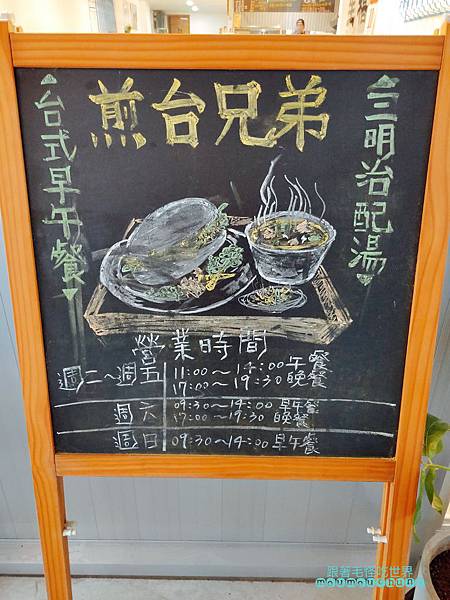 煎台兄弟
台式早午餐
三明治配湯
營業時間
週二～週五 11:00～14:00 午餐
17:00～19:30 晚餐
週六 09:30～14:00 早午餐
17:00～19:30 晚餐
週日 09:30～14:00 早午餐
跟著毛怪吃世界